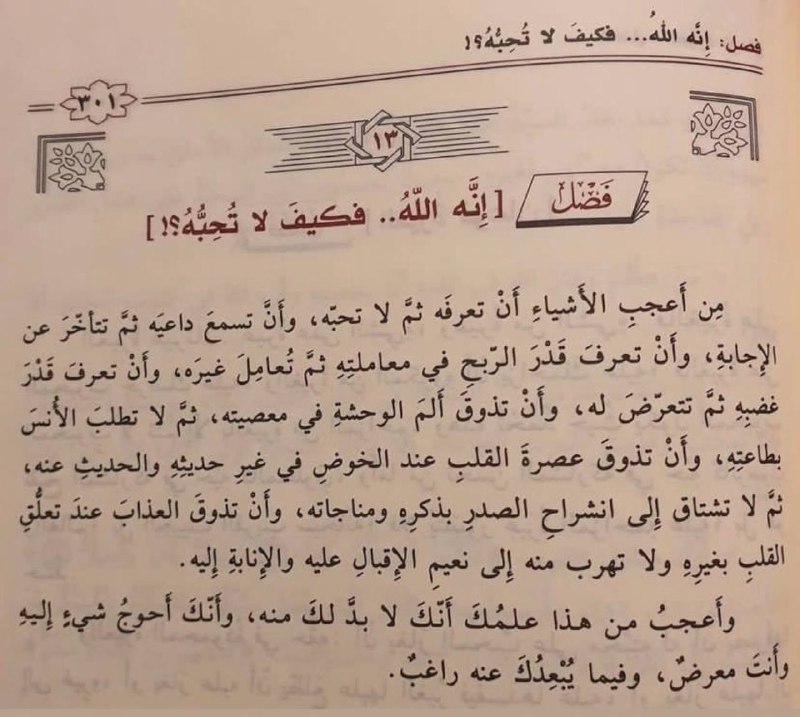 فصل: إِنَّه اللهُ... فكيفَ لا تُحِبُّهُ؟!
٣٠١
١٣
فَصْل
[إِنَّه اللّهُ.. فكيفَ لا تُحِبُّهُ؟!]
مِن أَعجبِ الأَشياءِ أَنْ تعرفَه ثمَّ لا تحبّه، وأَنَّ تسمعَ داعيَه ثمَّ تتأخّرَ عن
الإِجابةِ، وأَنْ تعرفَ قَدْرَ الرّبحِ في معاملتِهِ ثمَّ تُعامِلَ غيرَه، وأَنْ تعرفَ قَدْرَ
غضبِهِ ثمَّ تتعرّضَ له، وأَنْ تذوقَ أَلمَ الوحشةِ في معصيته، ثمَّ لا تطلبَ الأُنسَ
بطاعتِهِ، وأَنْ تذوقَ عصرةَ القلبِ عند الخوضِ في غيرِ حديثِهِ والحديثِ عنه،
ثمَّ لا تشتاق إِلى انشراحِ الصدرِ بذكرِهِ ومناجاته، وأَنْ تذوقَ العذابَ عندَ تعلُّقِ
القلبِ بغيرِهِ ولا تهرب منه إِلى نعيمِ الإِقبالِ عليه والإِنابةِ إِليه.
وأَعجبُ من هذا علمُكَ أَنّكَ لا بدَّ لكَ منه، وأَنّكَ أَحوجُ شيءٍ إِليهِ
وأَنتَ معرضٌ، وفيما يُبْعِدُكَ عنه راغبٌ.